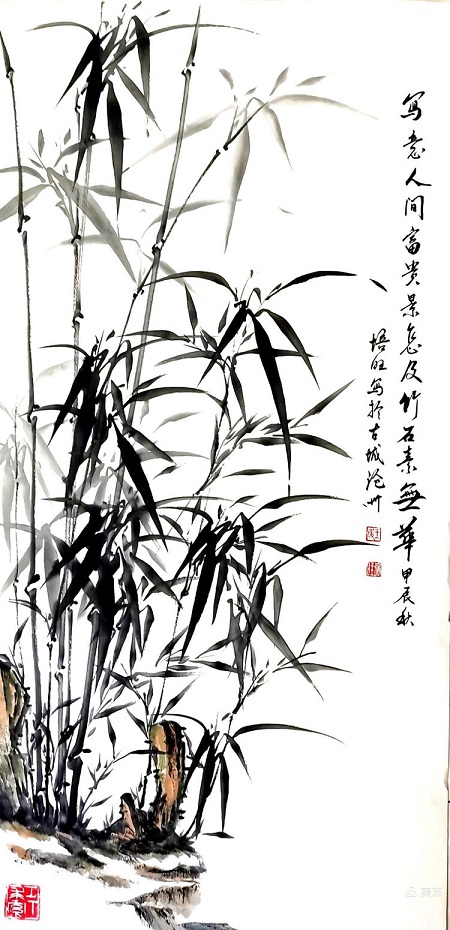 写意人间富贵景怎及竹石素無華 甲辰秋
培旺写於古城沧州